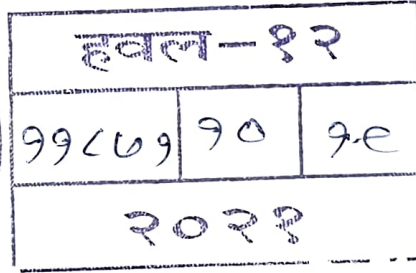 हवल-१२
११८७१ १० १९
२०२१